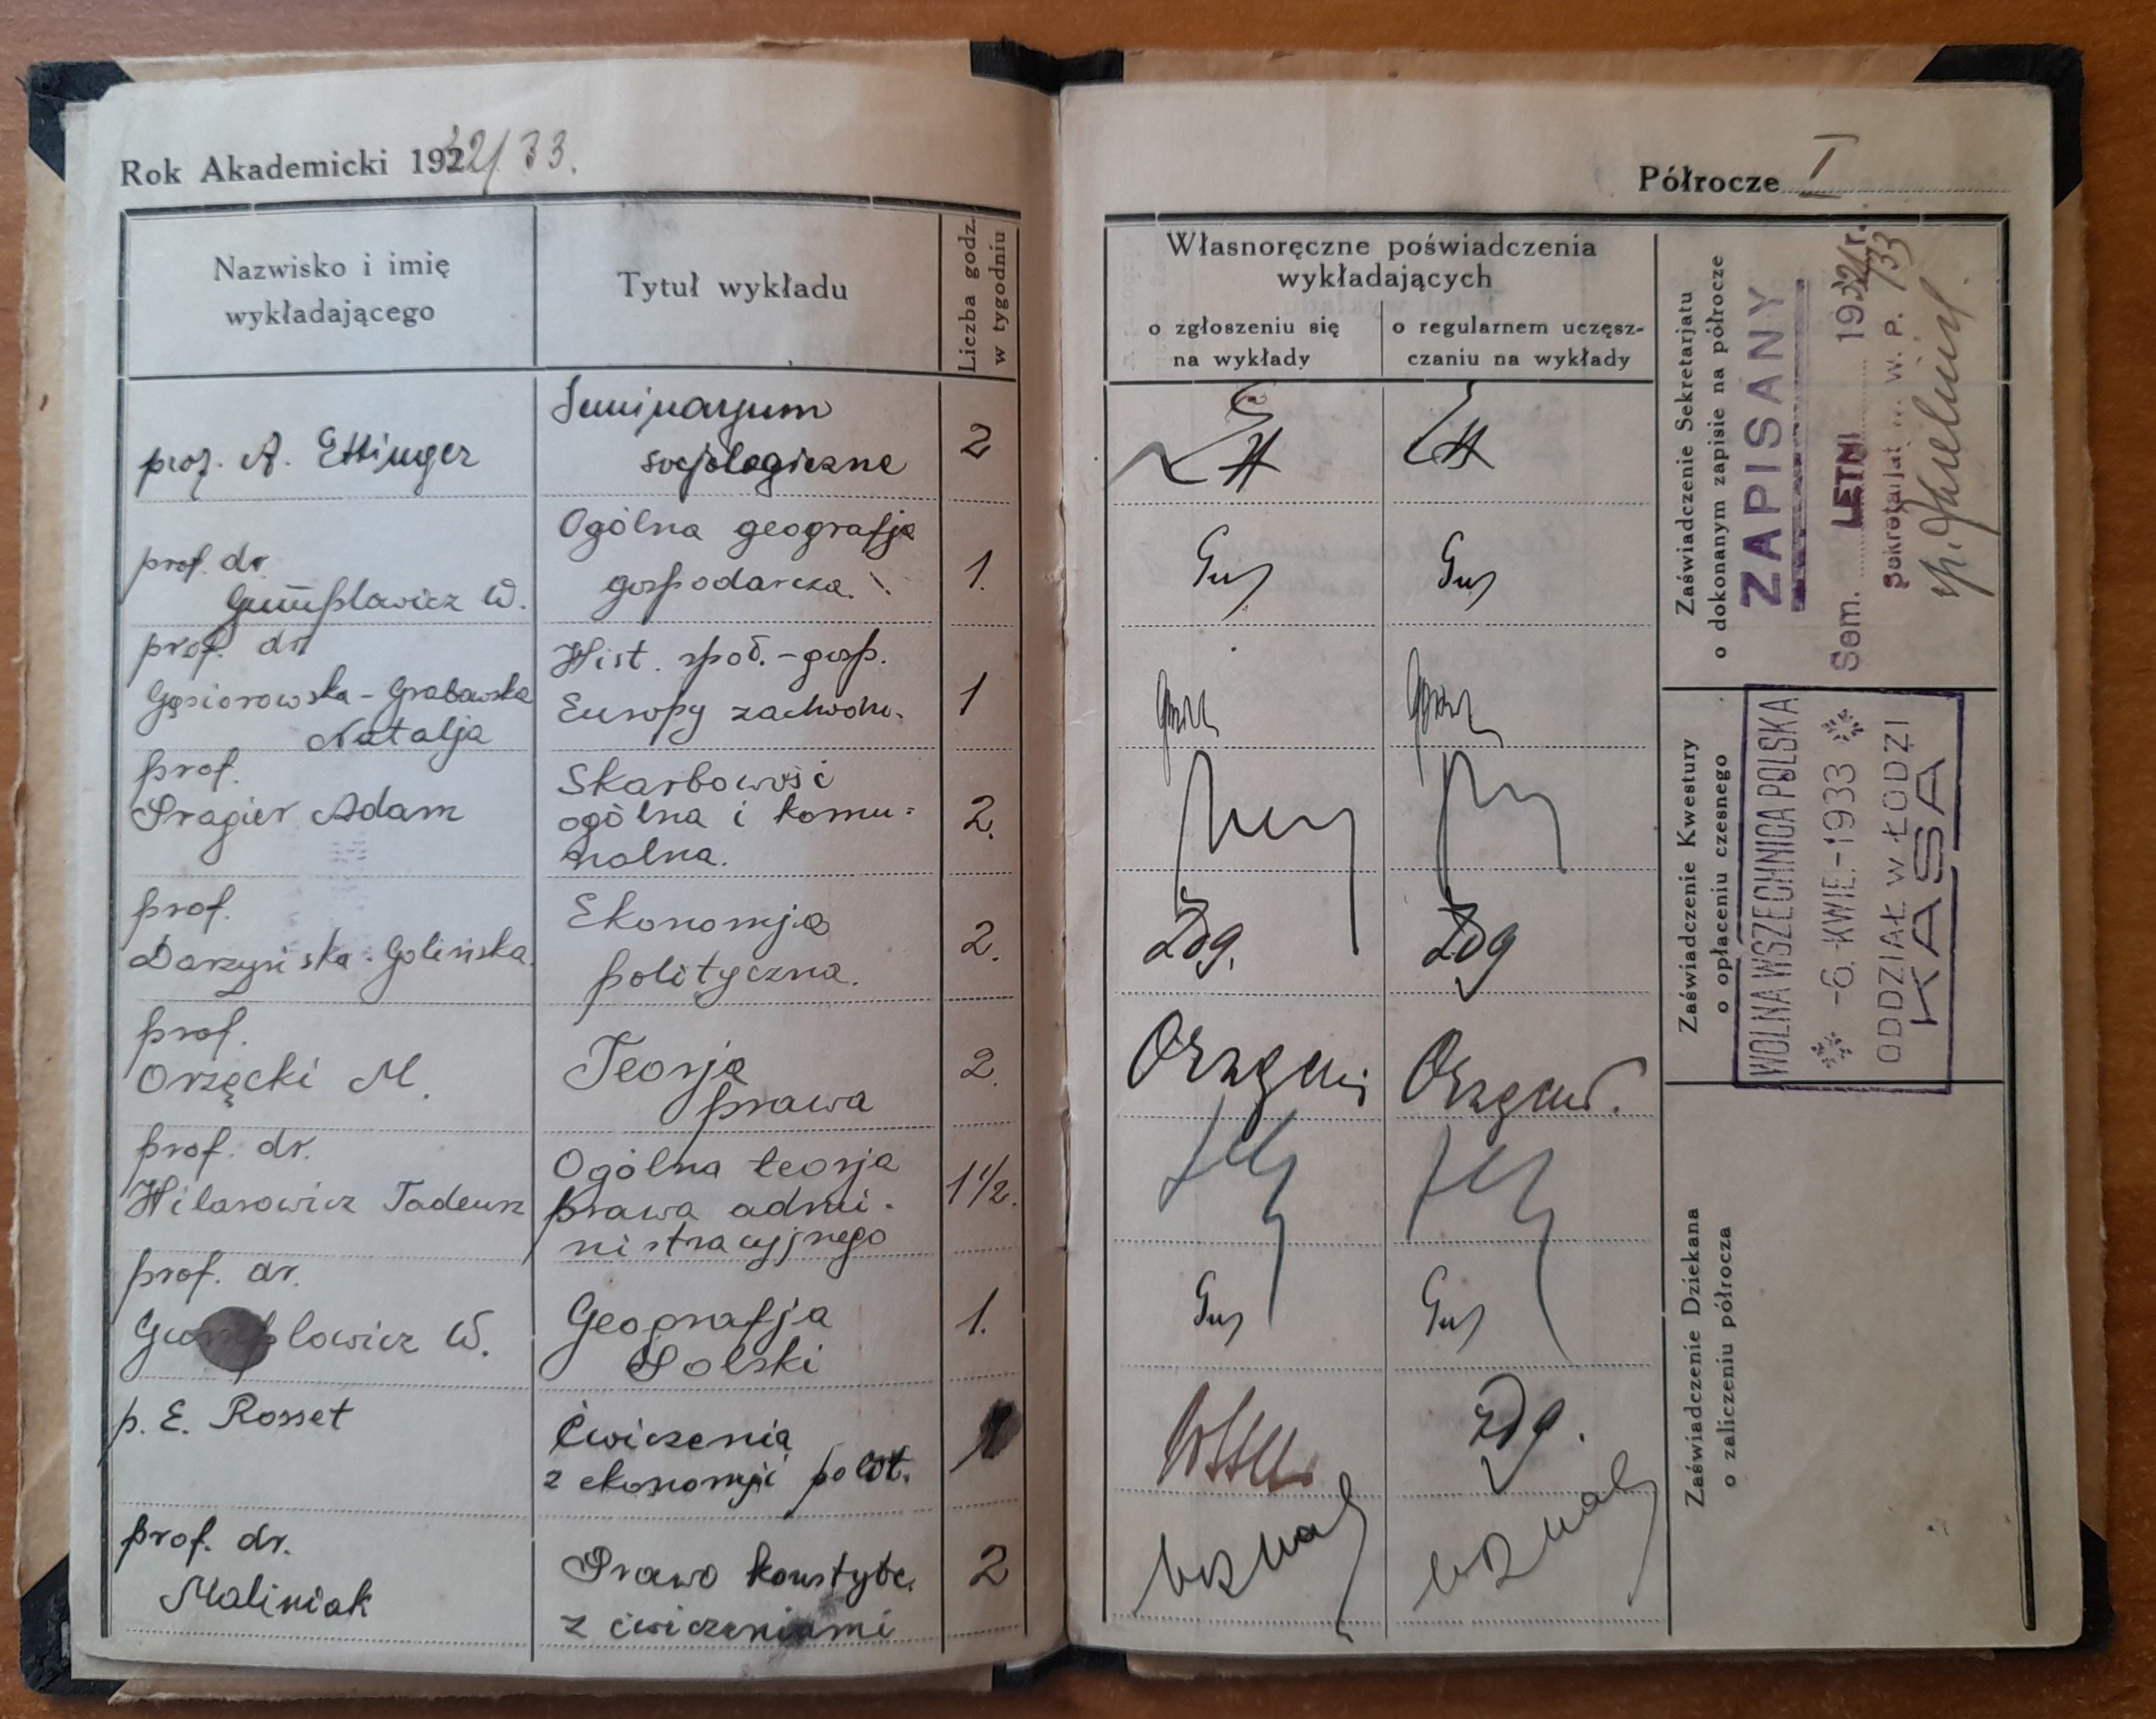 Rok Akademicki 1932/33.
Nazwisko i imię
wykładającego
Tytuł wykładu
Liczba godz.
w tygodniu
prof. A. Ettinger
Seminarjum
socjologiczne
2
prof. dr.
Gumplowicz W.
Ogólna geografja
gospodarcza.
1.
prof. dr
Gąsiorowska-Grabowska
Natalja
Hist. społ.-gosp.
Europy zachodn.
1
prof.
Pragier Adam
Skarbowość
ogólna i komu=
nalna.
2.
prof.
Daszyńska-Golińska.
Ekonomja
polityczna.
2.
prof.
Orzęcki M.
Teorja
prawa
2.
prof. dr.
Hilarowicz Tadeusz
Ogólna teorja
prawa admi-
nistracyjnego
1 1/2.
prof. dr.
Gumplowicz W.
Geografja
Polski
1.
p. E. Rosset
Ćwiczenia
z ekonomji polit.
1
prof. dr.
Maliniak
Prawo konstytc.
z ćwiczeniami
2
Półrocze I
Własnoręczne poświadczenia
wykładających
o zgłoszeniu się
na wykłady
o regularnem uczęsz-
czaniu na wykłady
Zdg.
Zdg
Zdg.
Zaświadczenie Sekretarjatu
o dokonanym zapisie na półrocze
ZAPISANY
Sem. LETNI 1932/33 r.
Sekretarjat W. W. P.
Zaświadczenie Kwestury
o opłaceniu czesnego
WOLNA WSZECHNICA POLSKA
-6. KWIE.-1933
ODDZIAŁ W ŁODZI
KASA
Zaświadczenie Dziekana
o zaliczeniu półrocza